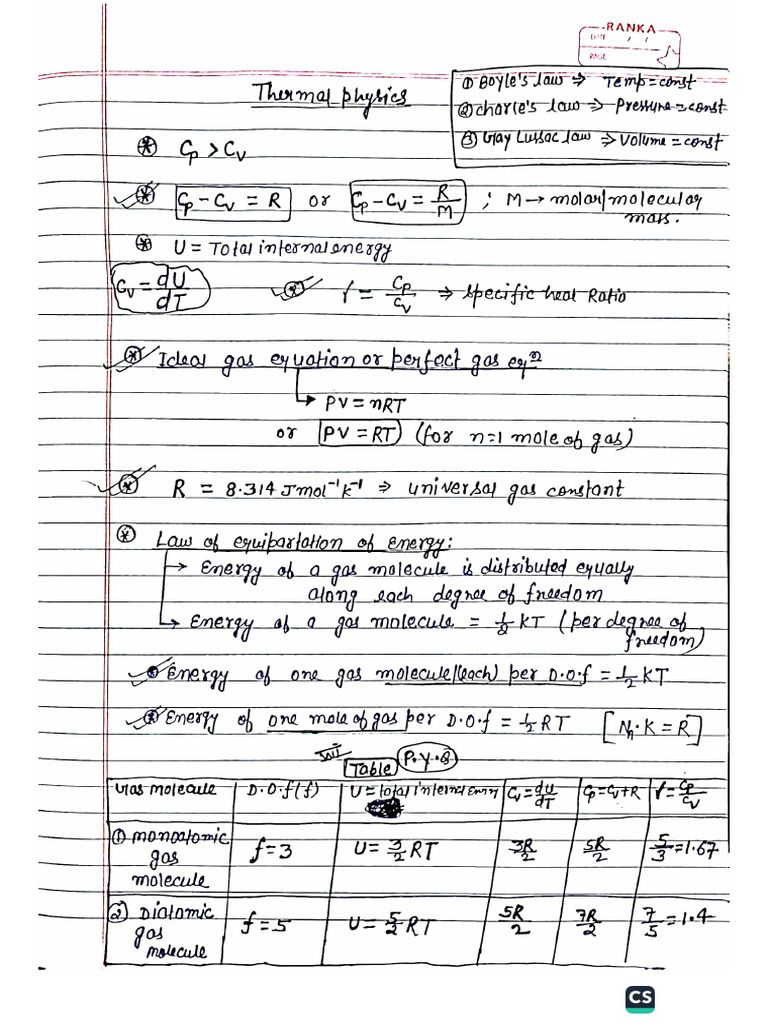 RANKA
DATE / /
PAGE
① Boyle's law ⇒ Temp=const
② Charle's law ⇒ Pressure=const
③ Gay Lussac law ⇒ Volume=const
Thermal physics
Cp > Cv
Cp − Cv = R or Cp − Cv = R/M ; M → molar/molecular
mass.
U = Total internal energy
Cv = dU/dT
γ = Cp/Cv ⇒ Specific heat Ratio
Ideal gas equation or perfect gas eqⁿ
PV = nRT
or PV = RT (for n=1 mole of gas)
R = 8.314 J mol⁻¹ K⁻¹ ⇒ universal gas constant
Law of equipartation of energy:
→ Energy of a gas molecule is distributed equally
along each degree of freedom
→ Energy of a gas molecule = 1/2 KT (per degree of
freedom)
Energy of one gas molecule/(each) per D.O.f = 1/2 KT
Energy of one mole of gas per D.O.f = 1/2 RT [N·K = R]
Table P.Y.Q
Gas molecule D.O.f(f) U = total internal Cv = dU/dT Cp = Cv+R γ = Cp/Cv
① monoatomic gas molecule f=3 U = 3/2 RT 3R/2 5R/2 5/3 = 1.67
② Diatomic gas molecule f=5 U = 5/2 RT 5R/2 7R/2 7/5 = 1.4
CS